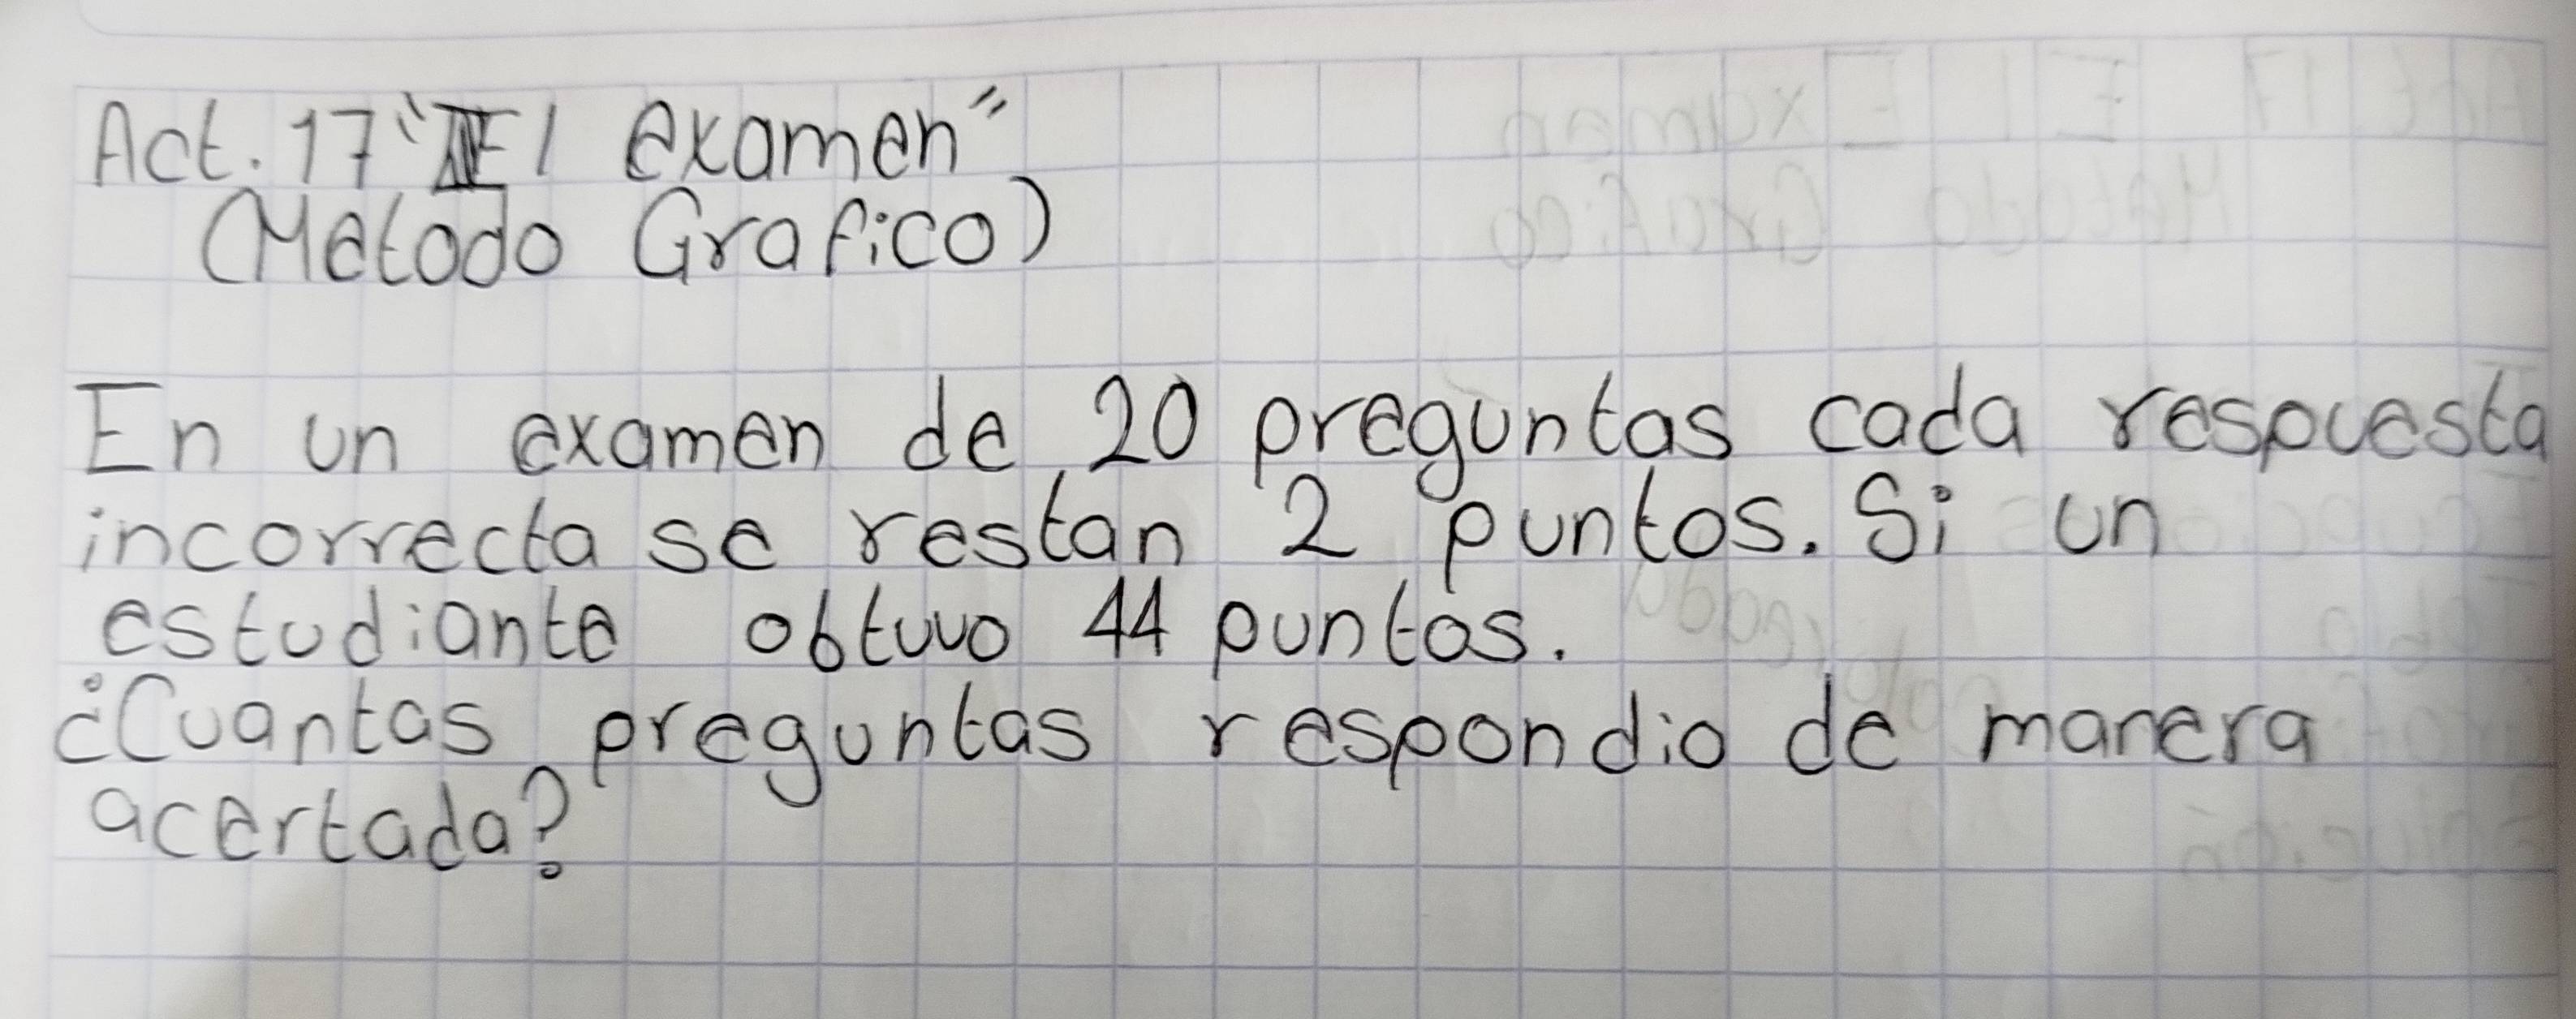 Act. 17 "El examen"
(Metodo Grafico)
En un examen de 20 preguntas cada respuesta
incorrecta se restan 2 puntos. Si un
estudiante obtuvo 44 puntos.
¿Cuantas preguntas respondio de manera
acertada?